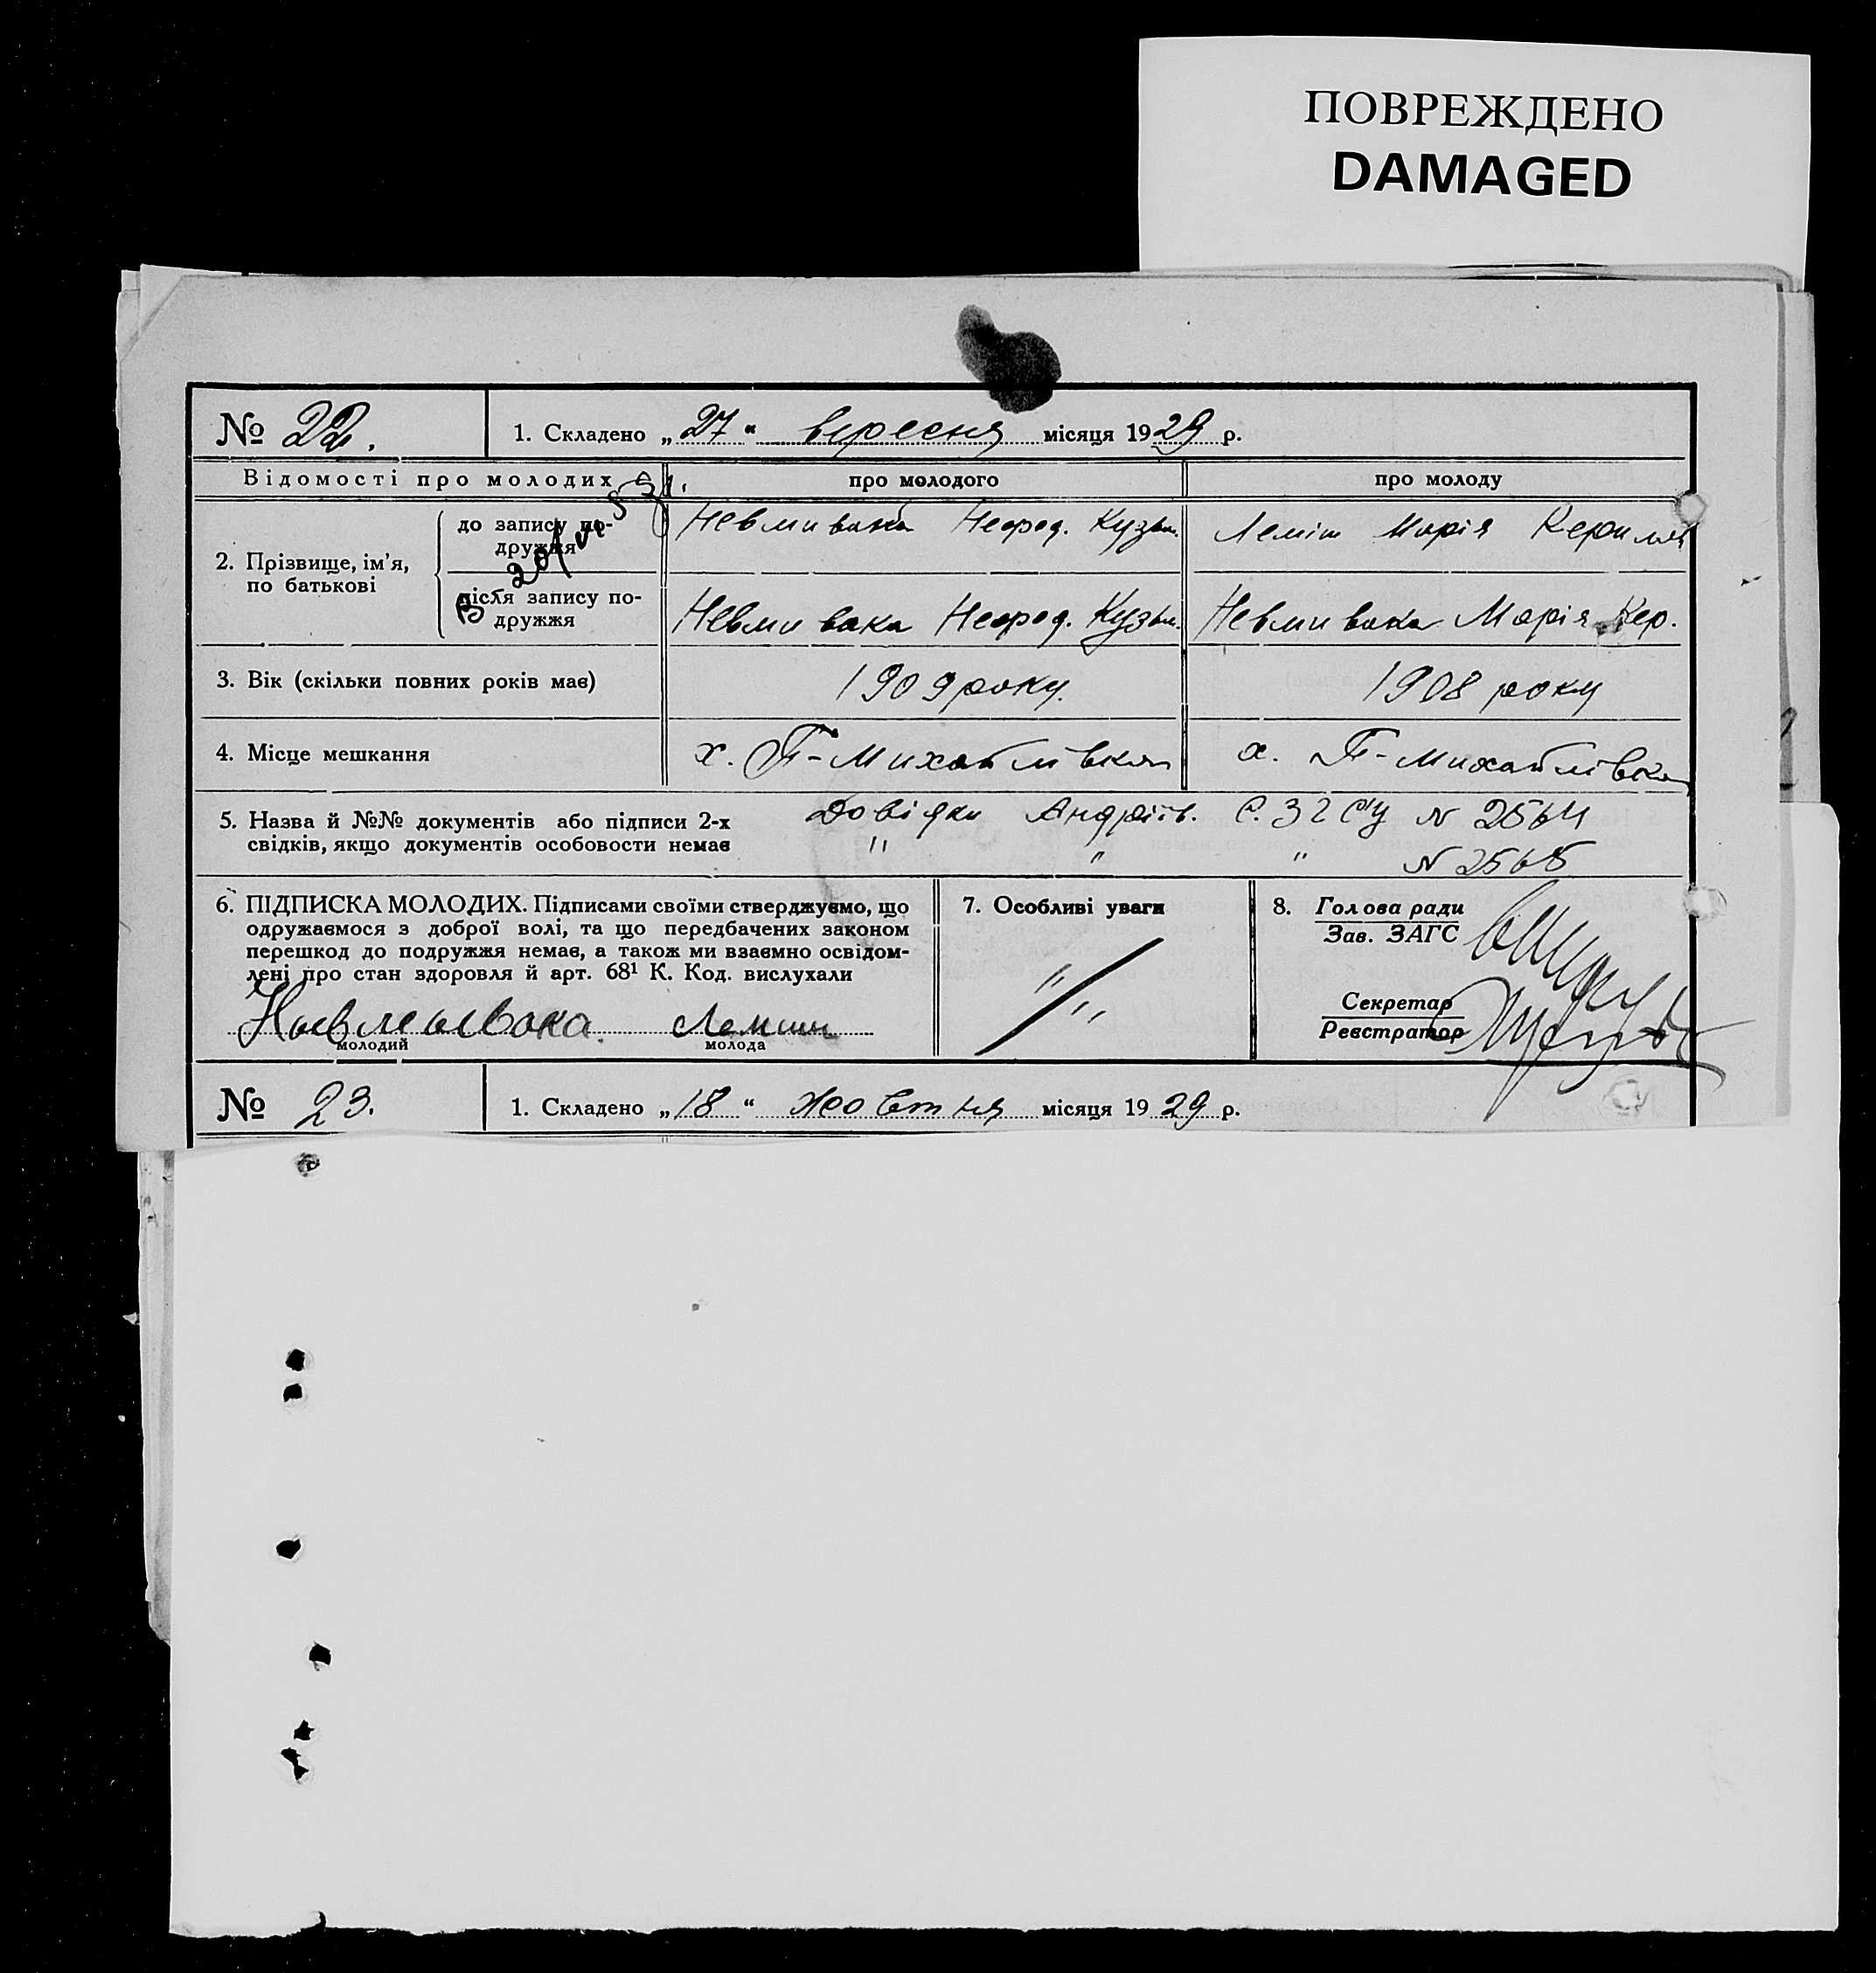 ПОВРЕЖДЕНО
DAMAGED
№ 22. 1. Складено „27" вересня місяця 1929 р.
Відомості про молодих про молодого про молоду
2. Прізвище, ім'я, по батькові
до запису по-дружжя Невмивака Неофод. Кузьм. Леміш Марія
після запису по-дружжя Невмивака Неофод. Кузьм. Невмивака Марія Кер.
3. Вік (скільки повних років має) 1909 року. 1908 року
4. Місце мешкання х. П-Михайлівка х. П-Михайлівка
5. Назва й №№ документів або підписи 2-х Довідки Андріїв. С. № 2564
свідків, якщо документів особовости немає " " " № 2565
6. ПІДПИСКА МОЛОДИХ. Підписами своїми стверджуємо, що
одружаємося з доброї волі, та що передбачених законом
перешкод до подружжя немає, а також ми взаємно освідом-
лені про стан здоровля й арт. 68¹ К. Код. вислухали
Нывмывака. Лемиш
молодий молода
7. Особливі уваги
" "
8. Голова ради
Зав. ЗАГС
Секретар
Реєстратор
№ 23. 1. Складено „18" жовтня місяця 1929 р.